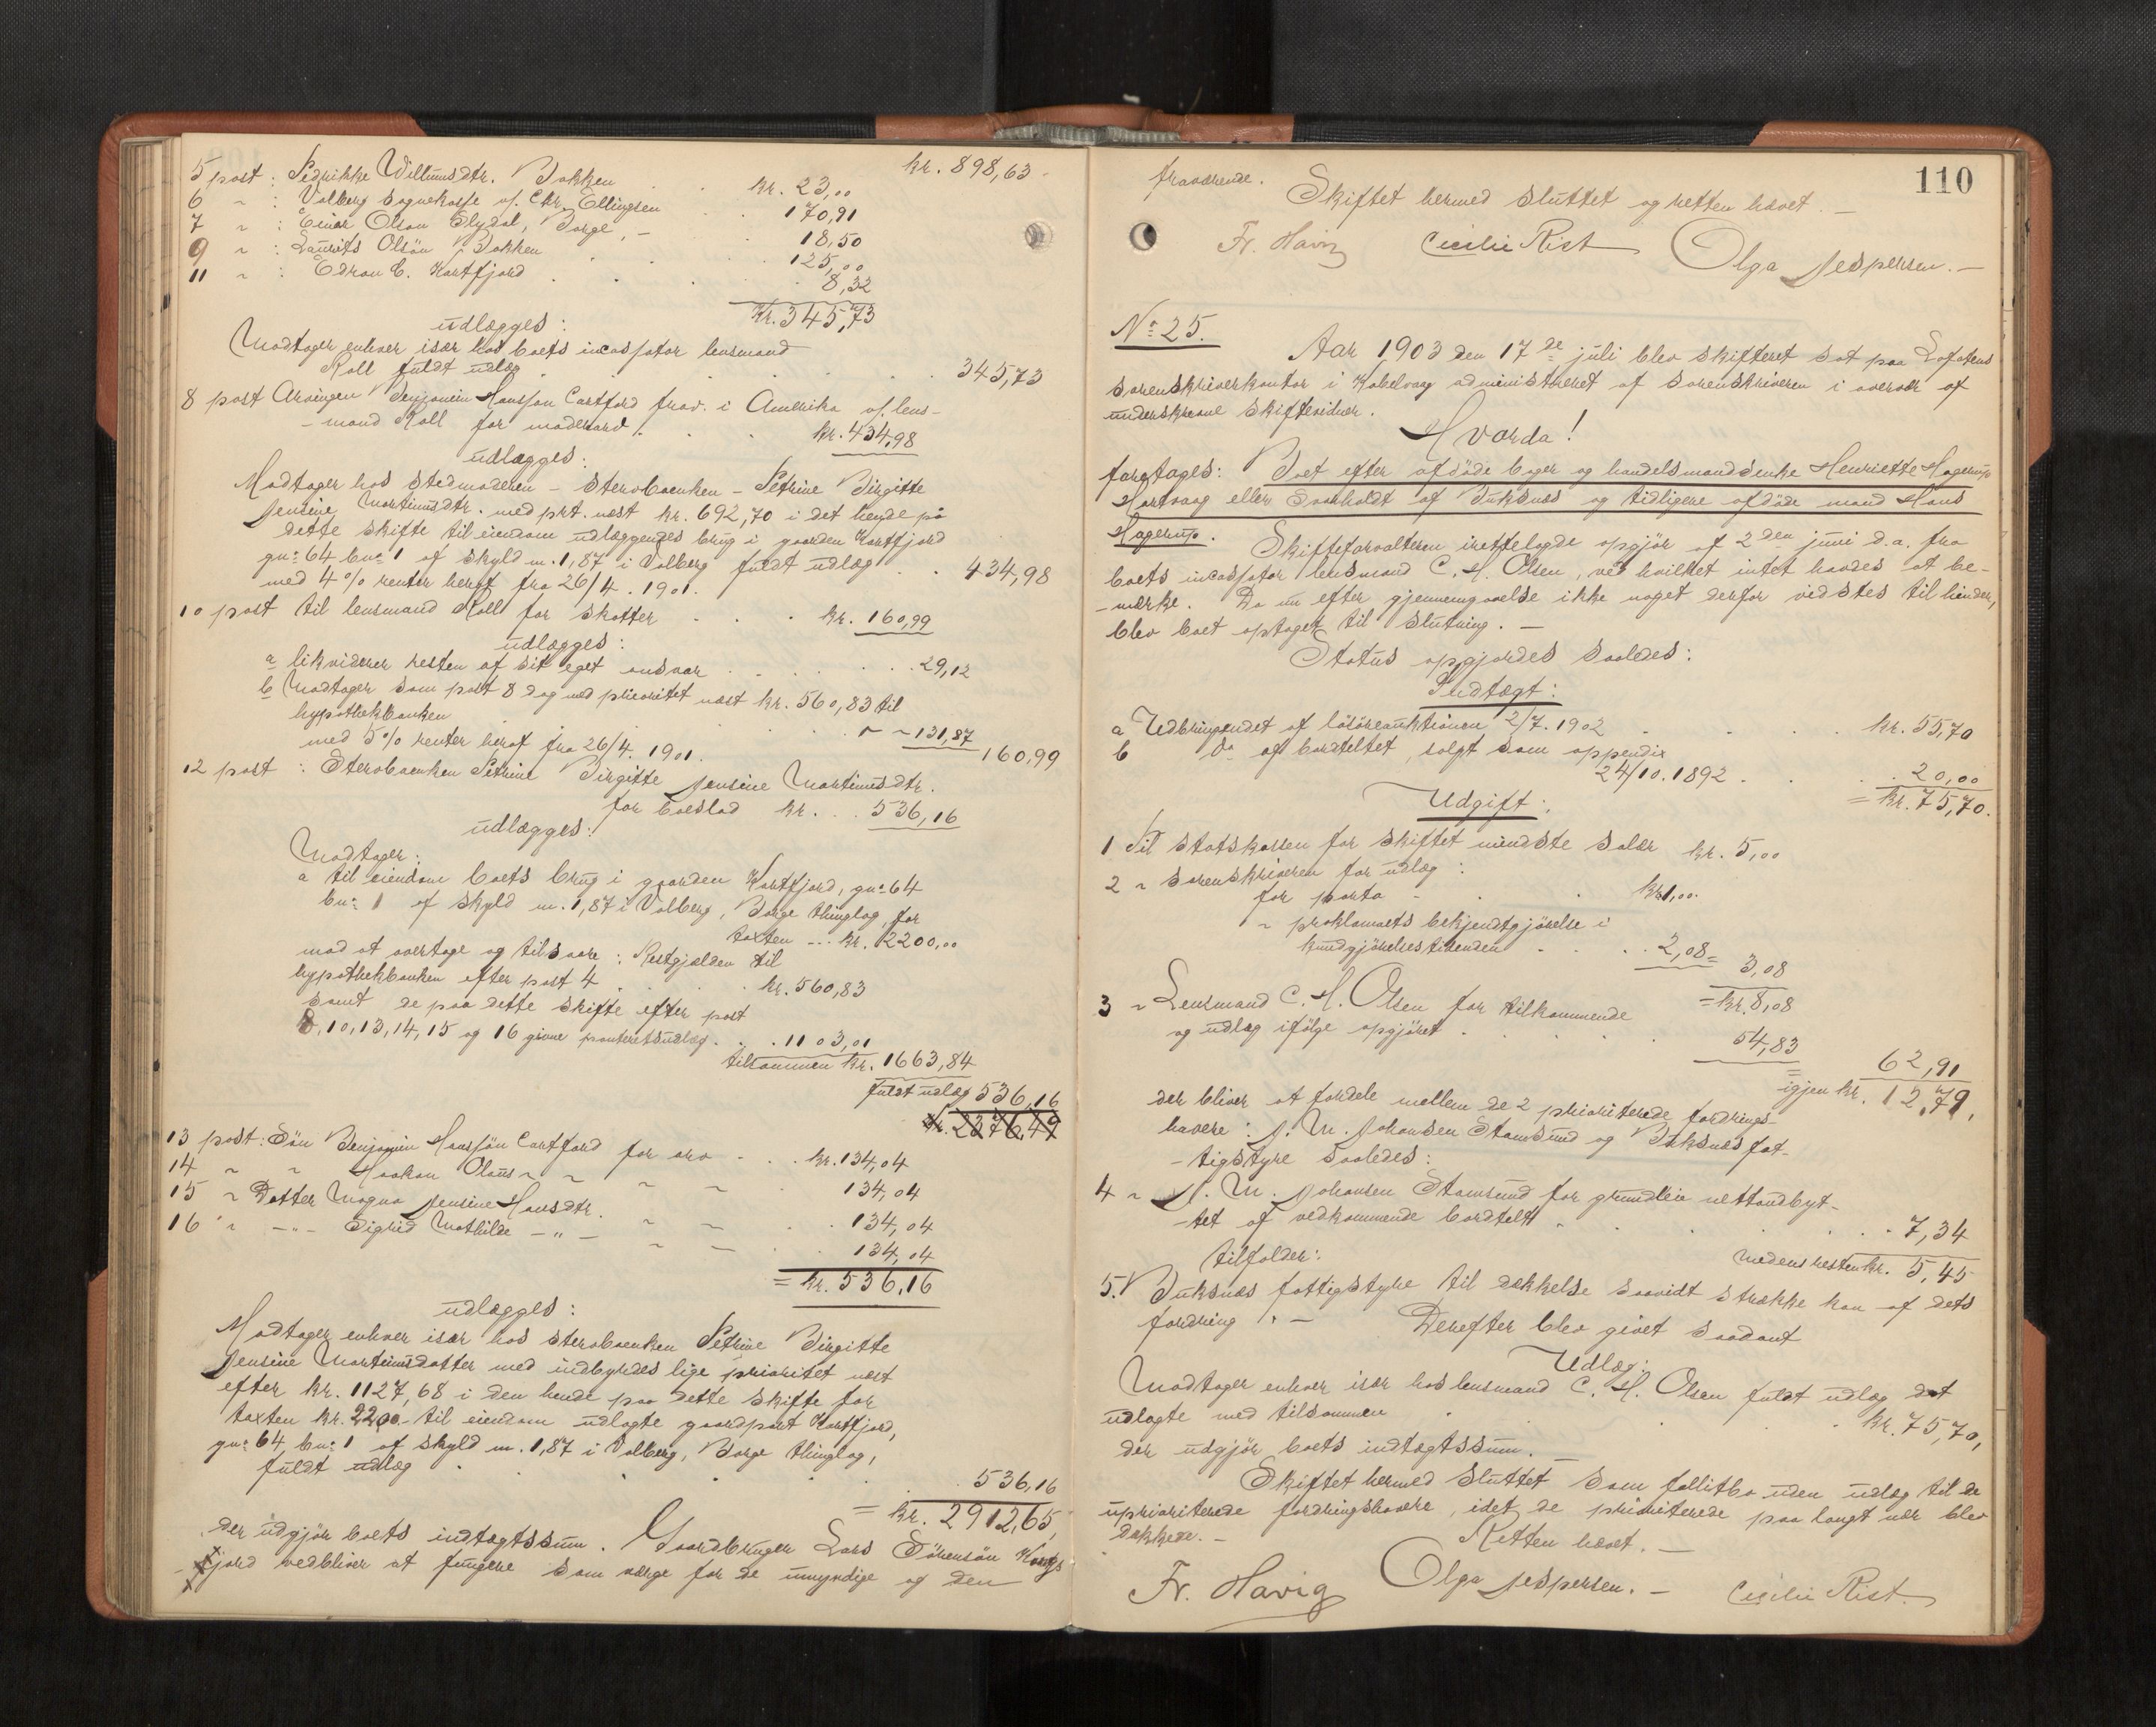 kr. 898,63
5 post: Fedrikke Willumsdtr. Bakken kr. 23,00
6 " : Valberg sognekasse v/. Chr. Ellingsen 170,91
7 " : Einar Olsen Slydal, Borge. - 18,50
9 " : Laurits Olsön, Bakken 125,00
11 " : Edvan C. Kartfjord 8,32
Kr. 345,73
udlægges:
Modtager enhver især hos boets incassator lensmand
Roll fuldt udlæg 345,73
8 post Arvingen Benjamin Hansson Cartford frav. i Amerika v/. lens-
-mand Roll for mødrearv kr. 434,98
udlægges:
Modtager hos stedmoderen - sterboenken - Petrine Birgitte
Jensine Martinusdtr. med prt. næst kr. 692,70 i det hende på
dette skifte til eiendom udlæggendes brug i gaarden Kartfjord
gn: 64 bn: 1 af skyld m. 1,87 i Valberg fuldt udlæg 434,98
med 4 % renter heraf fra 26/4. 1901.
10 post til lensmand Roll for skatter kr. 160,99
udlægges:
a likviderer resten af sit eget ansvar 29,12
b Modtager som post 8 dog med prioritet næst kr. 560,83 til
hypothekbanken " " 131,87
med 5 % renter heraf fra 26/4. 1901. 160,99
12 post : Sterboenken Petrine Birgitte Jensine Martinusdtr.
for boeslod kr. 536,16
udlægges:
Modtager:
a til eiendom boets brug i gaarden Kartfjord, gn: 64
bn: 1 af skyld m. 1,87 i Valberg, Borge thinglag, for
taxten ... kr. 2200,00
mod at overtage og tilsvare: Restgjælden til
hypothekbanken efter post 4 kr. 560,83
samt de paa dette skifte efter post
8, 10, 13, 14, 15 og 16 givne panteretsudlæg 1103,01
tilsammen kr. 1663,84
fuldt udlæg 536,16
kr. 2376,49
13 post: Sön Benjamin Hanssön Cartford for arv kr. 134,04
14 " " Haakon Olaus " " " " 134,04
15 " Datter Magna Jensine Hansdtr. " " 134,04
16 " -"- Sigrid Mathilde -"- " " 134,04
= kr. 536,16
udlægges:
Modtager enhver især hos sterboenken Petrine Birgitte
Jensine Martinusdatter med indbyrdes lige prioritet næst
efter kr. 1127,68 i den hende paa dette skifte for
taxten kr. 2200,- til eiendom udlagte gaardpart Kartfjord,
gn: 64, bn: 1 af skyld m. 1,87 i Valberg, Borge thinglag,
fuldt udlæg 536,16
= kr. 2912,65,
der udgjør boets indtægtssum. Gaardbruger Lars Sörensön Kart-
-fjord vedbliver at fungere som værge for de umyndige og den
110
fraværende.
Skiftet hermed sluttet og retten hævet. -
Fr. Havig Cicilie Rist Olga Jespersen. -
No: 25.
Aar 1903 den 17de juli blev skifteret sat paa Lofotens
sorenskriverkontor i Kabelvaag administreret af sorenskriveren i overvær af
underskrevne skiftevidner.
Hvorda!
foretages: Boet efter afdöde bager og handelsmandsenke Henriette Hagerup
Hartvaag eller Svarholdt af Buksnæs og tidligere afdöde mand Hans
Hagerup.
Skifteforvalteren irettelagde opgjör af 2den juni d.a. fra
boets incassator lensmand C. H. Olsen, ved hvilket intet havdes at be-
-mærke. Da nu efter gjennemgaaelse ikke noget derfor vidstes til hinder,
blev boet optaget til slutning. -
Status opgjordes saaledes:
Indtægt:
a Udbringendet af lösöreauktionen 2/7. 1902 kr. 55,70
b do af bordteltet, solgt som appendix
24/10. 1892 20,00
= kr. 75,70.
Udgift:
1 Til statskassen for skiftet mindste salær kr. 5,00
2 " sorenskriveren for udlæg:
for porto kr 1,00.
" proklamaets bekjendtgjörelse i
kundgjörelsestidenden 2,08 = 3,08
= kr. 8,08
3 " Lensmand C. H. Olsen for tilkommende
og udlæg ifölge opgjöret 54,83
= 62,91
igjen kr. 12,79,
der bliver at fordele mellem de 2 prioriterede fordrings-
havere: J. M. Johansen Stamsund og Buksnæs fat-
-tigstyre saaledes:
4 " J. M. Johansen Stamsund for grundleie nettoudbyt-
-tet af vedkommende bordtelt 7,34
medens resten kr. 5,45
tilfalder:
5. Buksnæs fattigstyre til dækkelse saavidt strække kan af dets
fordring. - Derefter blev givet saadant
Udlæg:
Modtager enhver især hos lensmand C. H. Olsen fuldt udlæg det
udlagte med tilsammen kr. 75,70,
der udgjör boets indtægtssum.
Skiftet hermed sluttet som fallitbo uden udlæg til de
uprioriterede fordringshavere, idet de prioriterede paa langt nær blev
dækkede. -
Retten hævet. -
Fr. Havig Olga Jespersen. - Cicilie Rist